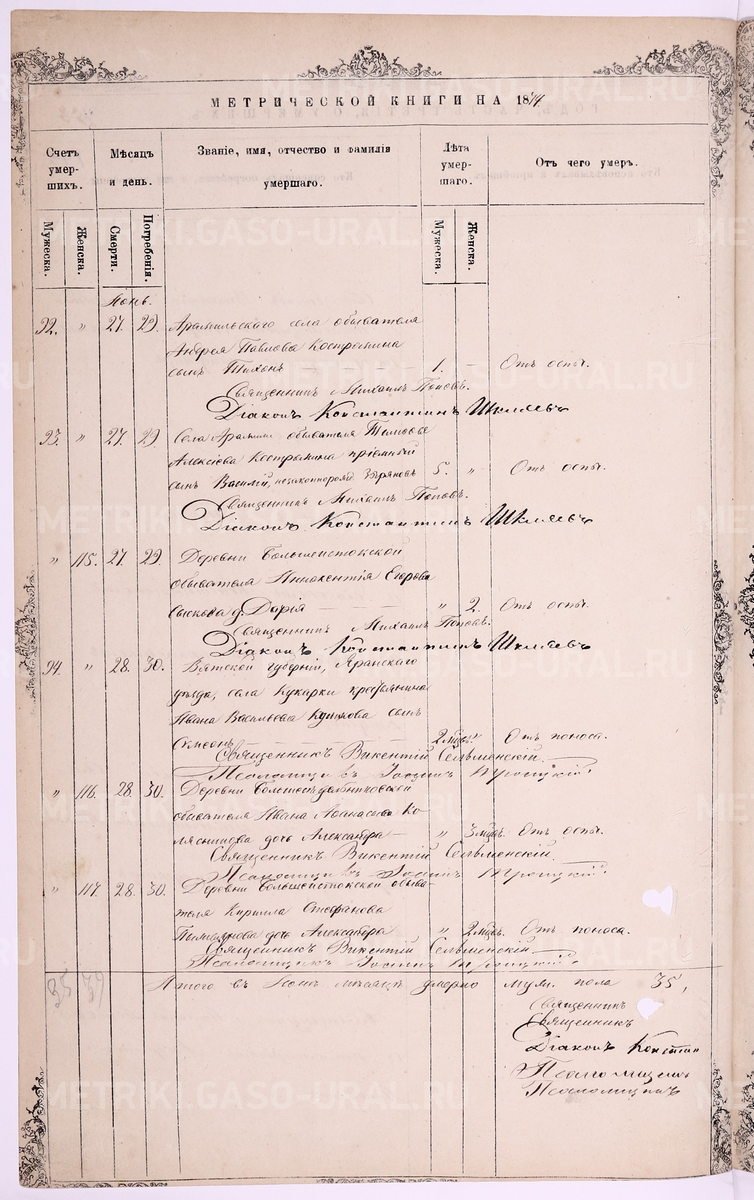 МЕТРИЧЕСКОЙ КНИГИ НА 1874
Счетъ умер-шихъ.
Мѣсяцъ и день.
Званіе, имя, отчество и фамилія умершаго.
Лѣта умер-шаго.
Отъ чего умеръ.
Мужеска.
Женска.
Смерти.
Погребенія.
Мужеска.
Женска.
92. " 27. 29. Арамильскаго села обывателя
Андрея Павлова Костромина
сынъ Тихонъ 1. Отъ оспы.
Священникъ Михаилъ Поповъ.
Діаконъ Константинъ Шкляевъ
93. " 27. 29. Села Арамили обывателя
Алексіева Костромина пріемный
сынъ Василій, 5. " Отъ оспы.
Священникъ Михаилъ Поповъ.
Діаконъ Константинъ Шкляевъ
" 115. 27. 29. Деревни Большеистокской
обывателя Иннокентія Егорова
д. Дарія " 2. Отъ оспы.
Священникъ Михаилъ Поповъ.
Діаконъ Константинъ Шкляевъ
94. " 28. 30. Вятской губерніи, Яранскаго
уѣзда, села Кукарки крестьянина
Ивана Васильева сынъ
Симеонъ 2 мѣс. " Отъ поноса.
Священникъ Викентій Сельменскій.
Псаломщикъ Іоаннъ Троицкій.
" 116. 28. 30. Деревни
обывателя Ивана Афанасьева Ко-
лясникова дочь Александра " 3 мѣс. Отъ оспы.
Священникъ Викентій Сельменскій.
Псаломщикъ Іоаннъ Троицкій.
" 117. 28. 30. Деревни Большеистокской обыва-
теля Кирилла Стефанова
дочь Александра " 2 мѣс. Отъ поноса.
Священникъ Викентій Сельменскій
Псаломщикъ Іоаннъ Троицкій.
35 39
Итого въ мѣсяцѣ умерло муж. пола 35,
Священникъ
Священникъ
Діаконъ Констан
Псаломщикъ
Псаломщикъ
METRIKI.GASO-URAL.RU